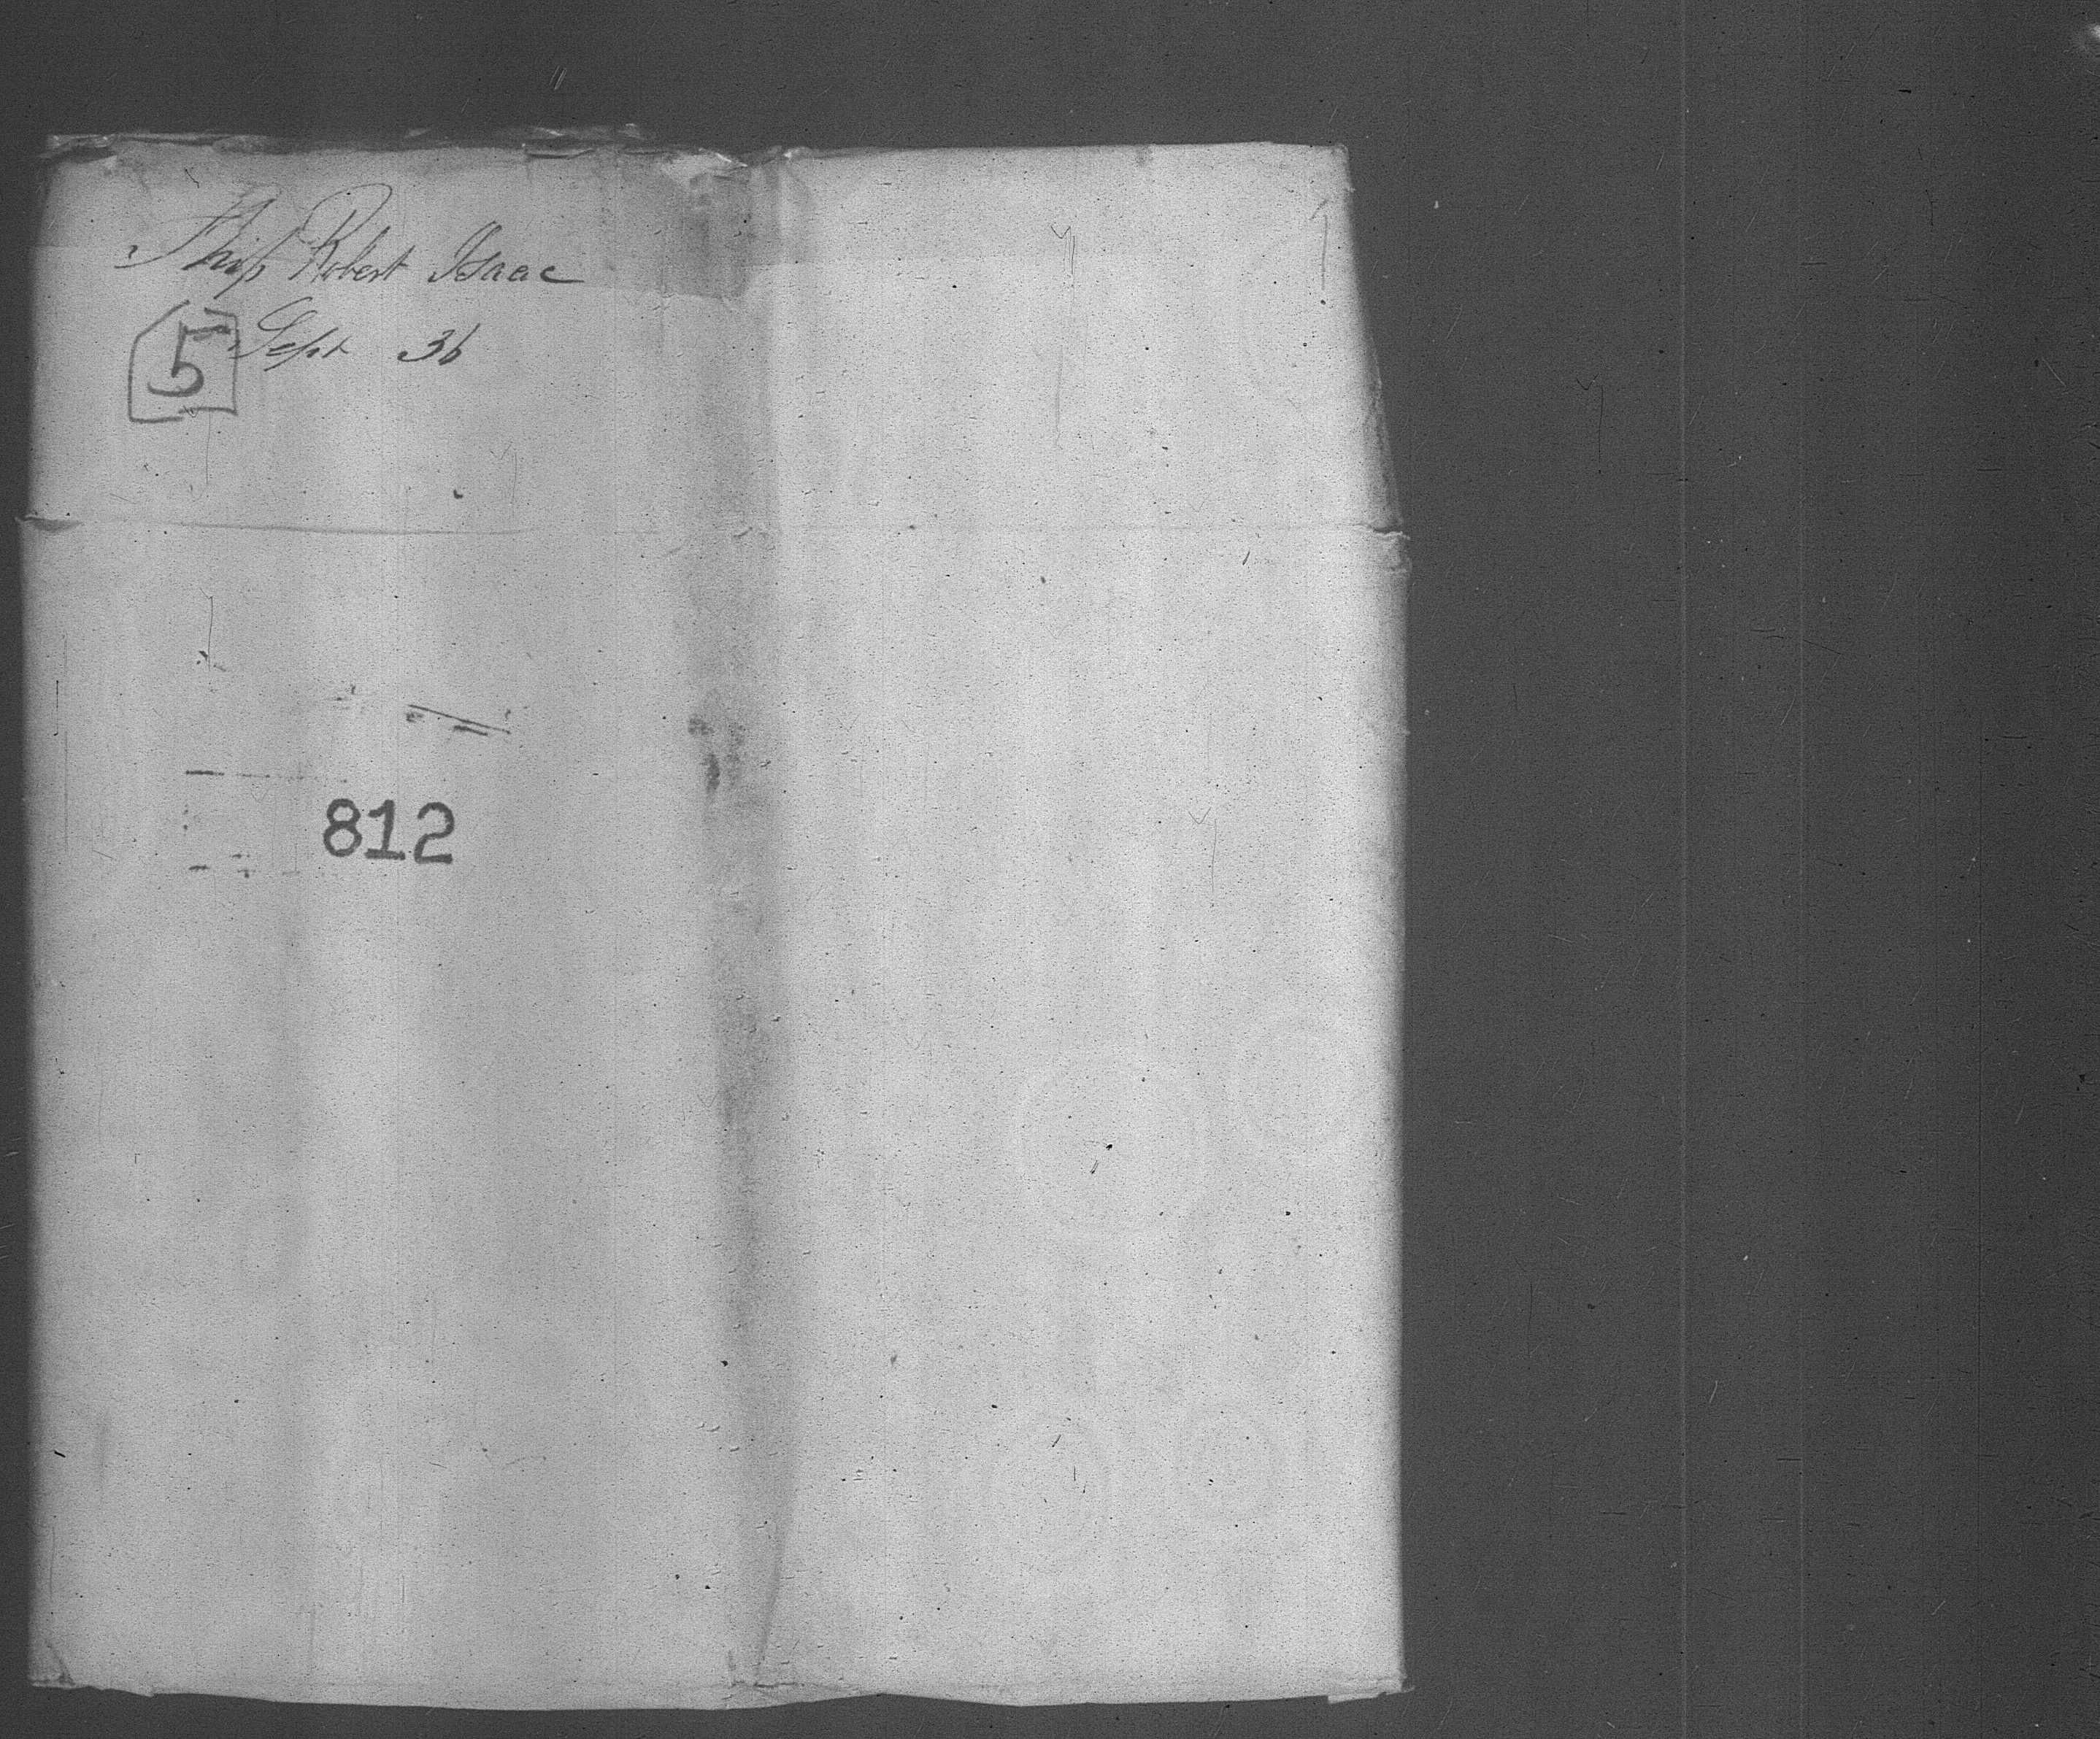 Ship Robert Isaac
5 Sept 36
812